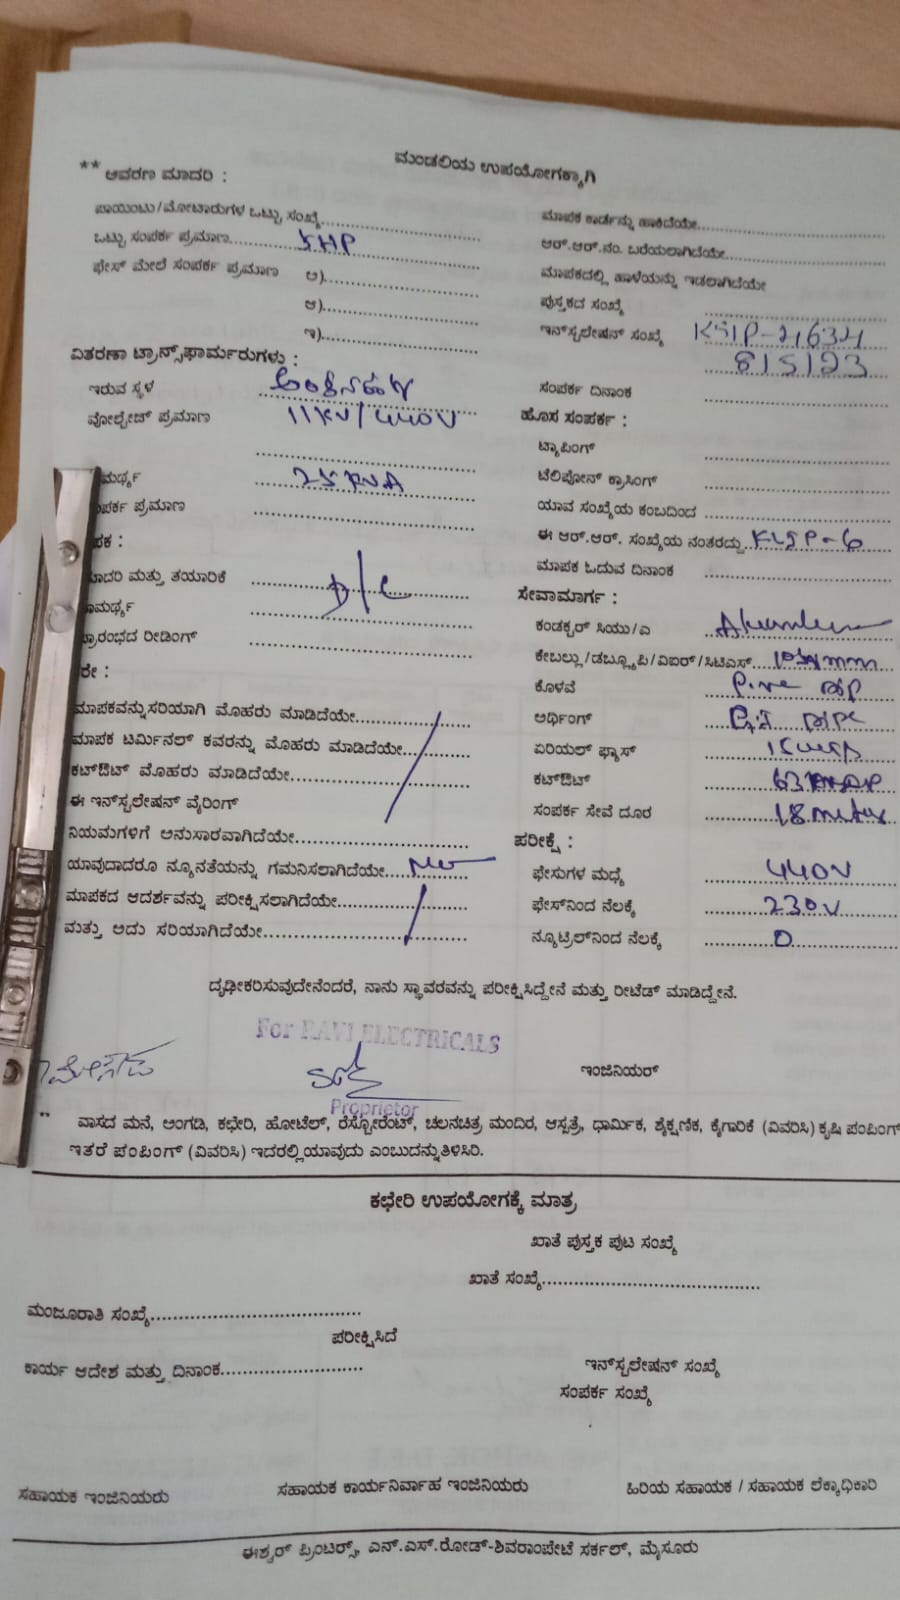 ಮಂಡಲಿಯ ಉಪಯೋಗಕ್ಕಾಗಿ
** ಆವರಣ ಮಾದರಿ :
ಪಾಯಿಂಟು/ಮೋಟಾರುಗಳ ಒಟ್ಟು ಸಂಖ್ಯೆ
ಒಟ್ಟು ಸಂಪರ್ಕ ಪ್ರಮಾಣ 5HP
ಫೇಸ್ ಮೇಲೆ ಸಂಪರ್ಕ ಪ್ರಮಾಣ ಅ)
ಆ)
ಇ)
ವಿತರಣಾ ಟ್ರಾನ್ಸ್‌ಫಾರ್ಮರುಗಳು :
ಇರುವ ಸ್ಥಳ
ವೋಲ್ಟೇಜ್ ಪ್ರಮಾಣ 11KV/440V
ಮರ್ಥ್ಯ 25 KVA
ಪರ್ಕ ಪ್ರಮಾಣ
ಪಕ :
ಾದರಿ ಮತ್ತು ತಯಾರಿಕೆ D/C
ಾಮರ್ಥ್ಯ
್ರಾರಂಭದ ರೀಡಿಂಗ್
ರೇ :
ಮಾಪಕವನ್ನುಸರಿಯಾಗಿ ಮೊಹರು ಮಾಡಿದೆಯೇ
ಮಾಪಕ ಟರ್ಮಿನಲ್ ಕವರನ್ನು ಮೊಹರು ಮಾಡಿದೆಯೇ
ಕಟ್‌ಔಟ್ ಮೊಹರು ಮಾಡಿದೆಯೇ
ಈ ಇನ್‌ಸ್ಟಲೇಷನ್ ವೈರಿಂಗ್
ನಿಯಮಗಳಿಗೆ ಅನುಸಾರವಾಗಿದೆಯೇ
ಯಾವುದಾದರೂ ನ್ಯೂನತೆಯನ್ನು ಗಮನಿಸಲಾಗಿದೆಯೇ No
ಮಾಪಕದ ಆದರ್ಶವನ್ನು ಪರೀಕ್ಷಿಸಲಾಗಿದೆಯೇ
ಮತ್ತು ಅದು ಸರಿಯಾಗಿದೆಯೇ
ಮಾಪಕ ಕಾರ್ಡನ್ನು ಹಾಕಿದೆಯೇ
ಆರ್.ಆರ್.ನಂ. ಬರೆಯಲಾಗಿದೆಯೇ
ಮಾಪಕದಲ್ಲಿ ಹಾಳೆಯನ್ನು ಇಡಲಾಗಿದೆಯೇ
ಪುಸ್ತಕದ ಸಂಖ್ಯೆ
ಇನ್‌ಸ್ಟಲೇಷನ್ ಸಂಖ್ಯೆ KSIP-21634
8/5/23
ಸಂಪರ್ಕ ದಿನಾಂಕ
ಹೊಸ ಸಂಪರ್ಕ :
ಟ್ಯಾಪಿಂಗ್
ಟೆಲಿಪೋನ್ ಕ್ರಾಸಿಂಗ್
ಯಾವ ಸಂಖ್ಯೆಯ ಕಂಬದಿಂದ
ಈ ಆರ್.ಆರ್. ಸಂಖ್ಯೆಯ ನಂತರದ್ದು KLSP-6
ಮಾಪಕ ಓದುವ ದಿನಾಂಕ
ಸೇವಾಮಾರ್ಗ :
ಕಂಡಕ್ಟರ್ ಸಿಯು/ಎ
ಕೇಬಲ್ಲು/ಡಬ್ಲ್ಯೂಪಿ/ವಿಐರ್/ಸಿಟಿಎಸ್
ಕೊಳವೆ
ಅರ್ಥಿಂಗ್
ಏರಿಯಲ್ ಫ್ಯೂಸ್
ಕಟ್‌ಔಟ್
ಸಂಪರ್ಕ ಸೇವೆ ದೂರ 18 meter
ಪರೀಕ್ಷೆ :
ಫೇಸುಗಳ ಮಧ್ಯೆ 440V
ಫೇಸ್‌ನಿಂದ ನೆಲಕ್ಕೆ 230V
ನ್ಯೂಟ್ರಿಲ್‌ನಿಂದ ನೆಲಕ್ಕೆ 0
ದೃಢೀಕರಿಸುವುದೇನೆಂದರೆ, ನಾನು ಸ್ಥಾವರವನ್ನು ಪರೀಕ್ಷಿಸಿದ್ದೇನೆ ಮತ್ತು ರೀಟೆಡ್ ಮಾಡಿದ್ದೇನೆ.
For RAVI ELECTRICALS
ಇಂಜಿನಿಯರ್
Proprietor
** ವಾಸದ ಮನೆ, ಅಂಗಡಿ, ಕಛೇರಿ, ಹೋಟೆಲ್, ರೆಸ್ಟೋರೆಂಟ್, ಚಲನಚಿತ್ರ ಮಂದಿರ, ಆಸ್ಪತ್ರೆ, ಧಾರ್ಮಿಕ, ಶೈಕ್ಷಣಿಕ, ಕೈಗಾರಿಕೆ (ವಿವರಿಸಿ) ಕೃಷಿ ಪಂಪಿಂಗ್
ಇತರೆ ಪಂಪಿಂಗ್ (ವಿವರಿಸಿ) ಇದರಲ್ಲಿಯಾವುದು ಎಂಬುದನ್ನುತಿಳಿಸಿರಿ.
ಕಛೇರಿ ಉಪಯೋಗಕ್ಕೆ ಮಾತ್ರ
ಖಾತೆ ಪುಸ್ತಕ ಪುಟ ಸಂಖ್ಯೆ
ಖಾತೆ ಸಂಖ್ಯೆ
ಮಂಜೂರಾತಿ ಸಂಖ್ಯೆ
ಪರೀಕ್ಷಿಸಿದೆ
ಕಾರ್ಯ ಆದೇಶ ಮತ್ತು ದಿನಾಂಕ
ಇನ್‌ಸ್ಟಲೇಷನ್ ಸಂಖ್ಯೆ
ಸಂಪರ್ಕ ಸಂಖ್ಯೆ
ಸಹಾಯಕ ಇಂಜಿನಿಯರು ಸಹಾಯಕ ಕಾರ್ಯನಿರ್ವಾಹ ಇಂಜಿನಿಯರು ಹಿರಿಯ ಸಹಾಯಕ / ಸಹಾಯಕ ಲೆಕ್ಕಾಧಿಕಾರಿ
ಈಶ್ವರ್ ಪ್ರಿಂಟರ್ಸ್, ಎನ್.ಎಸ್.ರೋಡ್-ಶಿವರಾಂಪೇಟೆ ಸರ್ಕಲ್, ಮೈಸೂರು